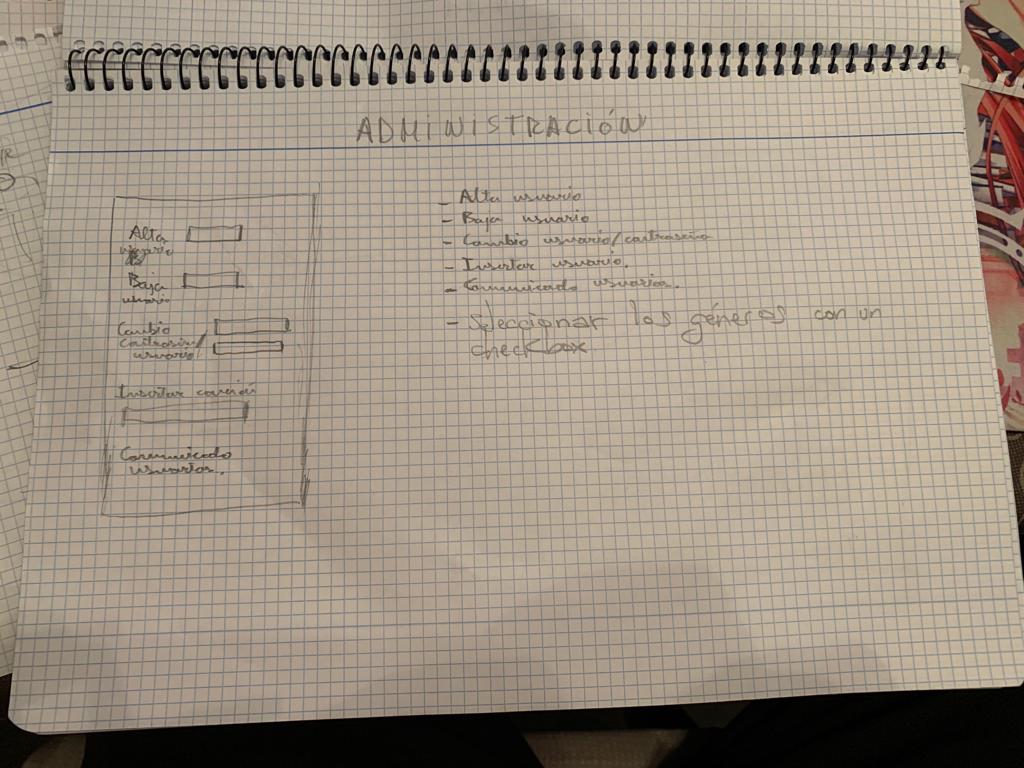 ADMINISTRACIÓN
Alta
usuario
Baja
usuario
Cambio
contraseña/
usuario
Insertar canción
Comunicado
usuarios.
- Alta usuario
- Baja usuario
- Cambio usuario/contraseña
- Insertar usuario.
- Comunicado usuarios.
- Seleccionar los géneros con un
checkbox